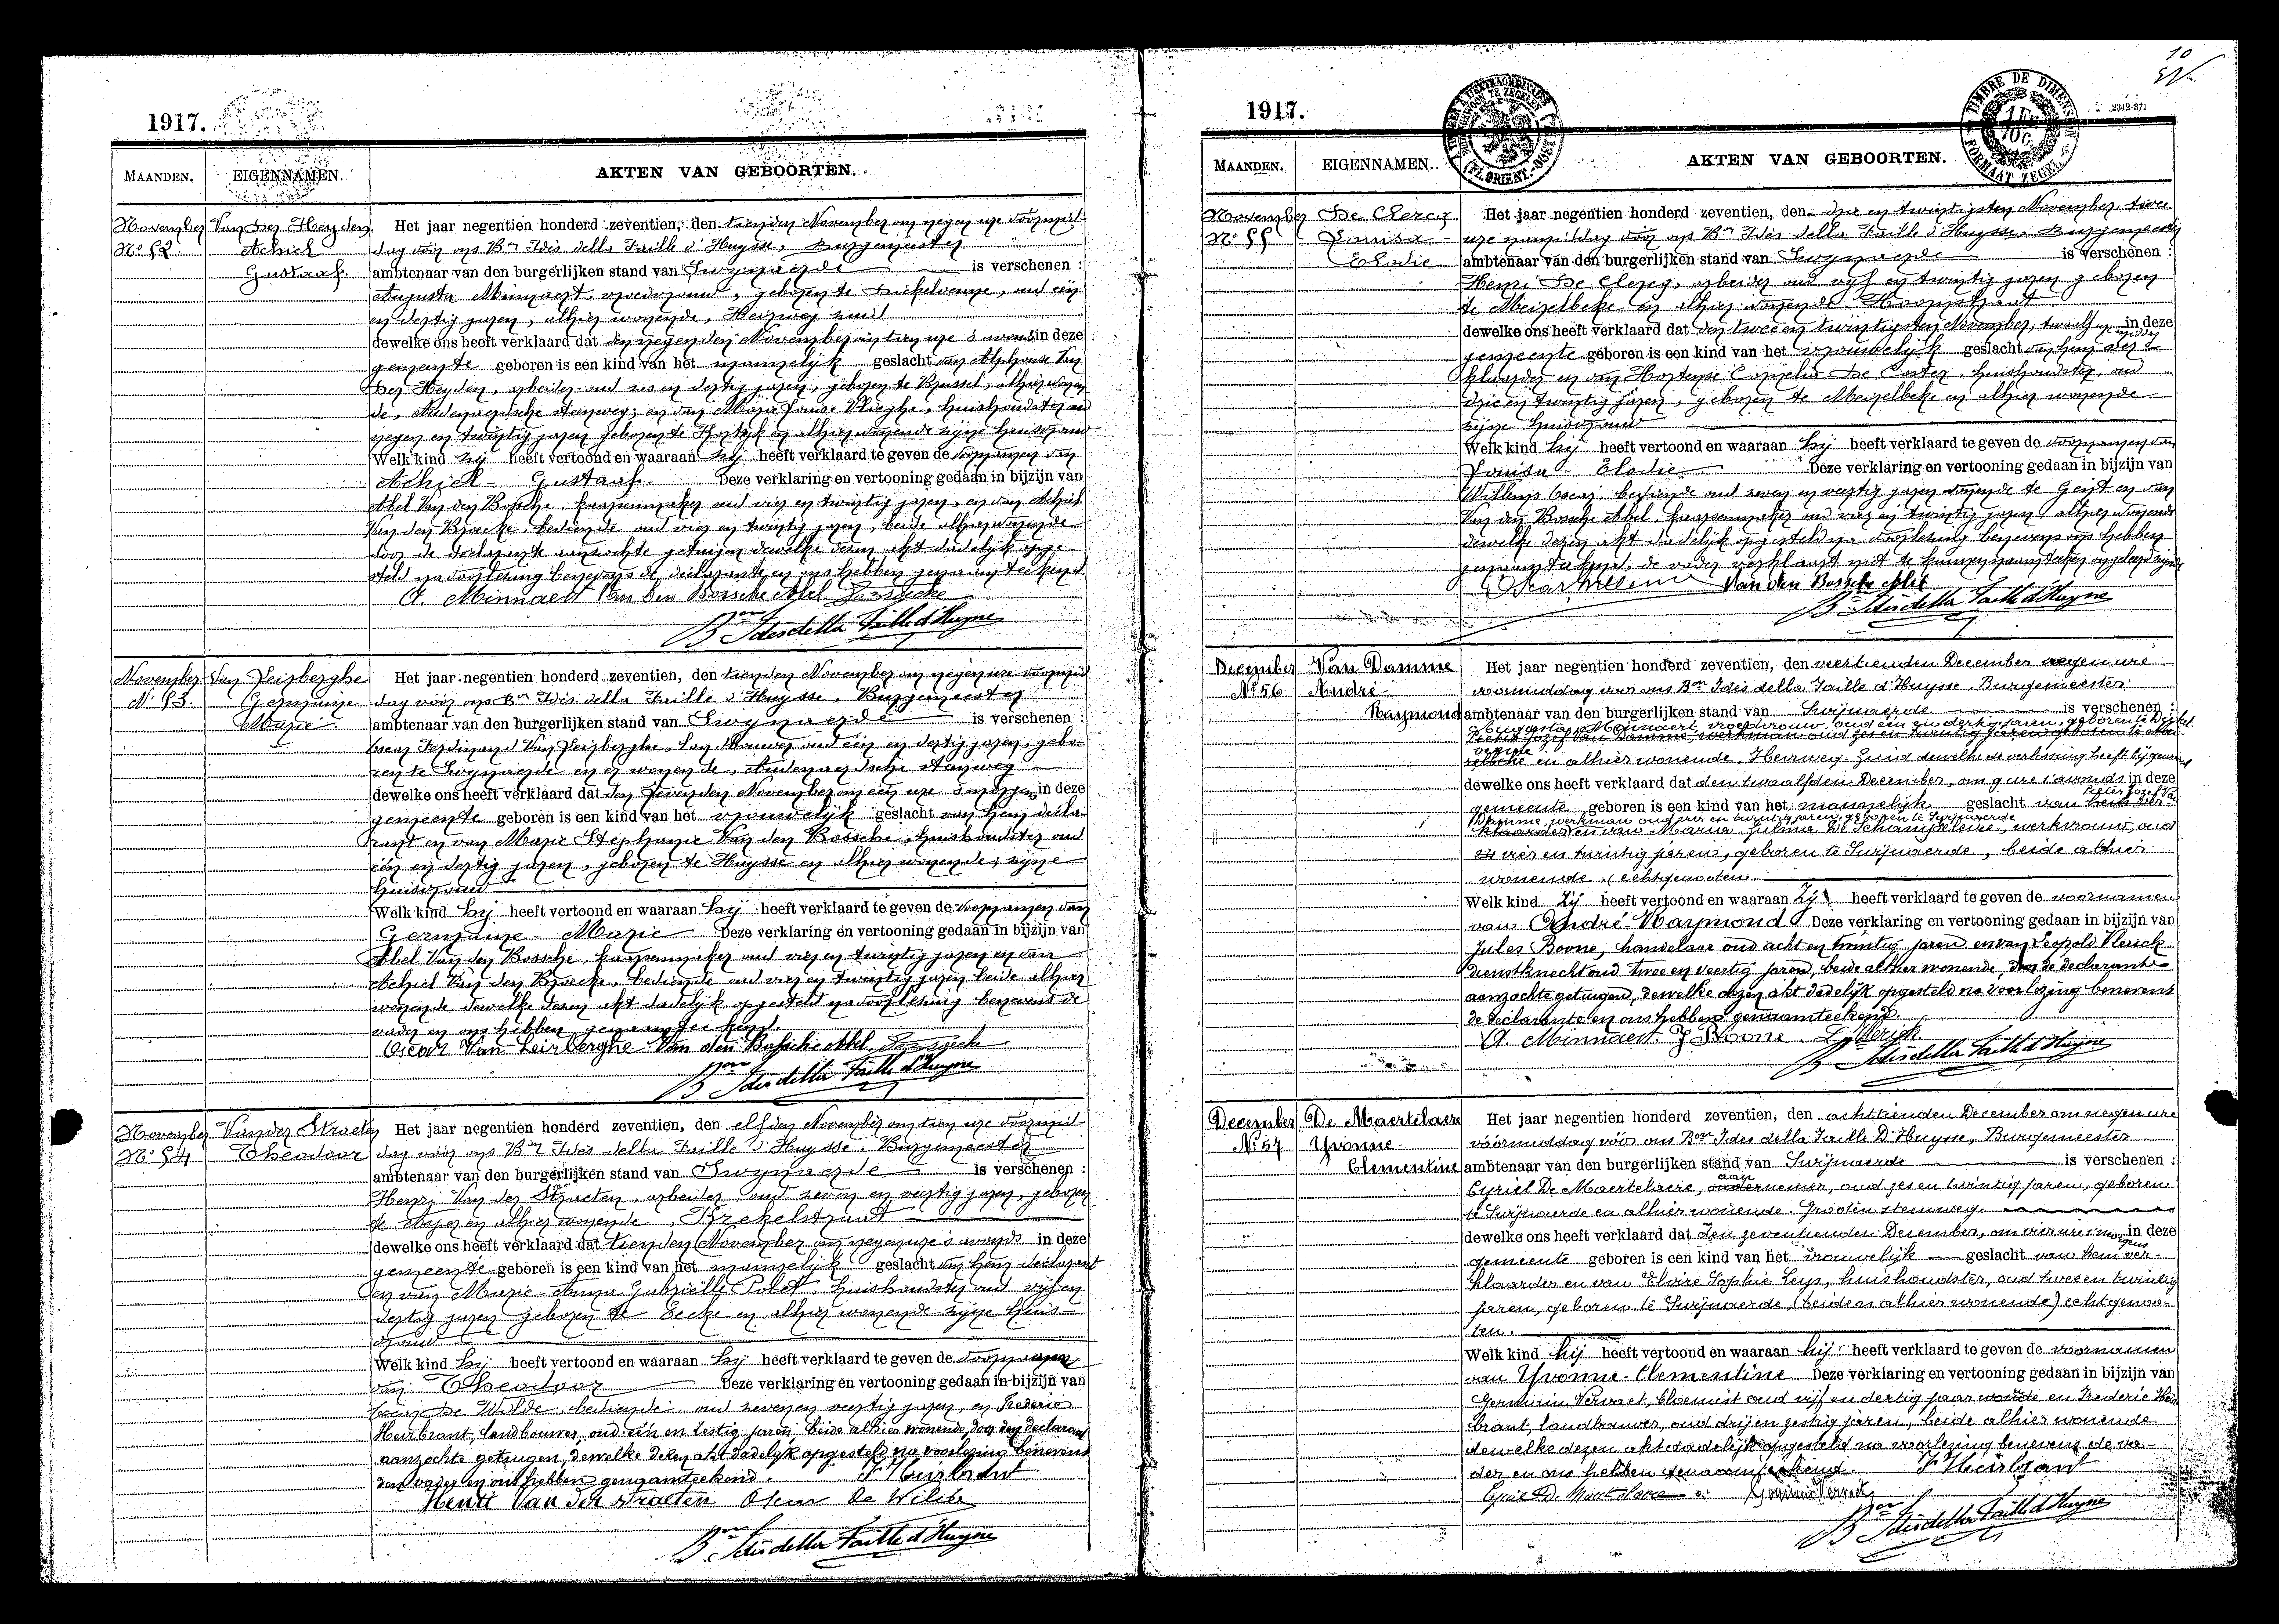 1917.
MAANDEN. EIGENNAMEN. AKTEN VAN GEBOORTEN.
November Van der Heyden Het jaar negentien honderd zeventien, den tienden November om negen ure voormid-
No 52 Achiel dag vóór ons Bon Idès della Faille d'Huysse, Burgemeester
Gustaaf ambtenaar van den burgerlijken stand van Swynaerde is verschenen :
Augusta Minnaert, vroedvrouw, geboren te Dickelvenne, oud één
en dertig jaren, alhier wonende, Heirweg zuid
dewelke ons heeft verklaard dat den negenden November om tien ure 's avonds in deze
gemeente geboren is een kind van het mannelijk geslacht van Alphonse Van
der Heyden, arbeider oud zes en dertig jaren, geboren te Brussel, alhier wonen
de, Audenaerdsche steenweg; en van Marie Louise Vlieghe, huishoudster oud
negen en twintig jaren geboren te Kortrijk en alhier wonende zijne huisvrouw
Welk kind zij heeft vertoond en waaraan zij heeft verklaard te geven de voornamen van
Achiel - Gustaaf. Deze verklaring en vertooning gedaan in bijzijn van
Abel Van den Bossche, kaarsenmaker oud vier en twintig jaren, en van Achiel
Van den Broecke, bediende oud vier en twintig jaren, beide alhier wonende
door de declarante aanzochte getuigen dewelke dezen akt dadelijk opge-
steld na voorlezing benevens de declarante en ons hebben genaamteekend
A. Minnaert Van den Bossche Abel
Bon Idès della Faille d'Huysse
November Van Leirberghe Het jaar negentien honderd zeventien, den tienden November om negen ure voormid
No 53. Germaine dag vóór ons Bon Idès della Faille d'Huysse, Burgemeester
Marie ambtenaar van den burgerlijken stand van Swynaerde is verschenen :
Oscar Ferdinand Van Leirberghe, landbouwer oud één en dertig jaren, gebo-
ren te Swynaerde en er wonende, Audenaerdsche steenweg
dewelke ons heeft verklaard dat den zevenden November om één ure 's morgens in deze
gemeente geboren is een kind van het vrouwelijk geslacht van hem decla-
rant en van Marie Stephanie Van den Bossche, huishoudster oud
één en dertig jaren, geboren te Huysse en alhier wonende; zijne
huisvrouw
Welk kind hij heeft vertoond en waaraan hij heeft verklaard te geven de voornamen van
Germaine - Marie Deze verklaring en vertooning gedaan in bijzijn van
Abel Van den Bossche, kaarsenmaker oud vier en twintig jaren en van
Achiel Van den Broecke, bediende oud vier en twintig jaren beide alhier
wonende dewelke dezen akt dadelijk opgesteld na voorlezing benevens de
vader en ons hebben genaamteekend.
Oscar Van Leirberghe Van den Bossche Abel.
Bon Idès della Faille d'Huysse
November Vander Straeten Het jaar negentien honderd zeventien, den elfden November om tien ure voormid-
No 54 Theodoor dag vóór ons Bon Idès della Faille d'Huysse, Burgemeester
ambtenaar van den burgerlijken stand van Swynaerde is verschenen :
Henri Van der Straeten, arbeider, oud zeven en veertig jaren, geboren
te en alhier wonende, Krekelstraat
dewelke ons heeft verklaard dat tienden November om negen ure 's avonds in deze
gemeente geboren is een kind van het mannelijk geslacht van hem declarant
en van Marie Anna Gabrielle Polet, huishoudster oud vijf en
dertig jaren geboren te Eecke en alhier wonende zijne huis-
vrouw
Welk kind hij heeft vertoond en waaraan hij heeft verklaard te geven de voornamen
van Theodoor Deze verklaring en vertooning gedaan in bijzijn van
Oscar De Wilde, bediende oud zeven en veertig jaren, en Frederic
Heirbrant, landbouwer, oud één en zestig jaren, beide alhier wonende, door den declarant
aanzochte getuigen, dewelke dezen akt dadelijk opgesteld na voorlezing benevens
den vader en ons hebben genaamteekend. F Heirbrant
Henri Van der Straeten Oscar De Wilde
Bon Idès della Faille d'Huysse
10
1917. 2342-871
TIMBRE DE DIMENSION
FORMAAT ZEGEL
(FL. ORIENT.-OOST VL.)
MAANDEN. EIGENNAMEN. AKTEN VAN GEBOORTEN.
November De Clercq Het jaar negentien honderd zeventien, den drie en twintigsten November, twee
No 55 Louisa - ure namiddag vóór ons Bon Idès della Faille d'Huysse, Burgemeester
Elodie ambtenaar van den burgerlijken stand van Swynaerde is verschenen :
Henri De Clercq, arbeider oud vijf en twintig jaren geboren
te Meirelbeke en alhier wonende Hoornstraat
dewelke ons heeft verklaard dat den twee en twintigsten November, twaalf ure middag in deze
gemeente geboren is een kind van het vrouwelijk geslacht van hem ver-
klaarder en van Hortense Cornelia De Coster, huishoudster, oud
drie en twintig jaren, geboren te Meirelbeke en alhier wonende
zijne huisvrouw
Welk kind hij heeft vertoond en waaraan hij heeft verklaard te geven de voornamen van
Louisa - Elodie Deze verklaring en vertooning gedaan in bijzijn van
Willems Oscar, bediende oud zeven en veertig jaren wonende te Gent en van
Van den Bossche Abel, kaarsenmaker oud vier en twintig jaren, alhier wonende
dewelke dezen akt dadelijk opgesteld na voorlezing benevens ons hebben
genaamteekend, de vader verklaart niet te kunnen naamteeken ongeleerd zijnde
Van den Bossche Abel
Bon Idès della Faille d'Huysse
December Van Damme Het jaar negentien honderd zeventien, den veertienden December negen ure
No 56 André - voormiddag voor ons Bon Idès della Faille d'Huysse, Burgemeester
Raymond ambtenaar van den burgerlijken stand van Swijnaerde is verschenen :
Augusta Minnaert, vroedvrouw, oud een en dertig jaren, geboren te Dickel
venne en alhier wonende, Heirweg Zuid dewelke de verlossing heeft bijgewoond
dewelke ons heeft verklaard dat den twaalfden December, om 9 ure 's avonds in deze
gemeente geboren is een kind van het mannelijk geslacht van Pieter Jozef Van
Damme, werkman oud zes en twintig jaren, geboren te Swijnaerde
en van Maria Julma De Schampelaire, werkvrouw, oud
vier en twintig jaren, geboren te Swijnaerde, beide alhier
wonende, echtgenooten.
Welk kind Zij heeft vertoond en waaraan Zij heeft verklaard te geven de voornamen
van André-Raymond Deze verklaring en vertooning gedaan in bijzijn van
Jules Boone, handelaar oud acht en twintig jaren en van Leopold Vlerick
dienstknecht oud twee en veertig jaren, beide alhier wonende, door de declarante
aanzochte getuigen, dewelke dezen akt dadelijk opgesteld na voorlezing benevens
de declarante en ons hebben genaamteekend.
A. Minnaert. J Boone. L. Vlerick
Bon Idès della Faille d'Huysse
December De Maertelaere Het jaar negentien honderd zeventien, den achttienden December om negen ure
No 57 Yvonne - voormiddag vóór ons Bon Idès della Faille D'Huysse, Burgemeester
Clementine ambtenaar van den burgerlijken stand van Swijnaerde is verschenen :
Cyriel De Maertelaere, aannemer, oud zes en twintig jaren, geboren
te Swijnaerde en alhier wonende. Grooten steenweg.
dewelke ons heeft verklaard dat den zeventienden December, om vier ure 's morgens in deze
gemeente geboren is een kind van het vrouwelijk geslacht van hem ver-
klaarder en van Elvire Sophie Leys, huishoudster, oud twee en twintig
jaren, geboren te Swijnaerde, (beiden alhier wonende) echtgenoo-
ten.
Welk kind hij heeft vertoond en waaraan hij heeft verklaard te geven de voornamen
van Yvonne-Clementine Deze verklaring en vertooning gedaan in bijzijn van
Germain Vervaet, bloemist oud vijf en dertig jaar en Frederic Heir
brant, landbouwer, oud drij en zestig jaren, beide alhier wonende
dewelke dezen akt dadelijk opgesteld na voorlezing benevens de va-
der en ons hebben genaamteekend. F Heirbrant
Cyriel De Maertelaere Germain Vervaet
Bon Idès della Faille d'Huysse